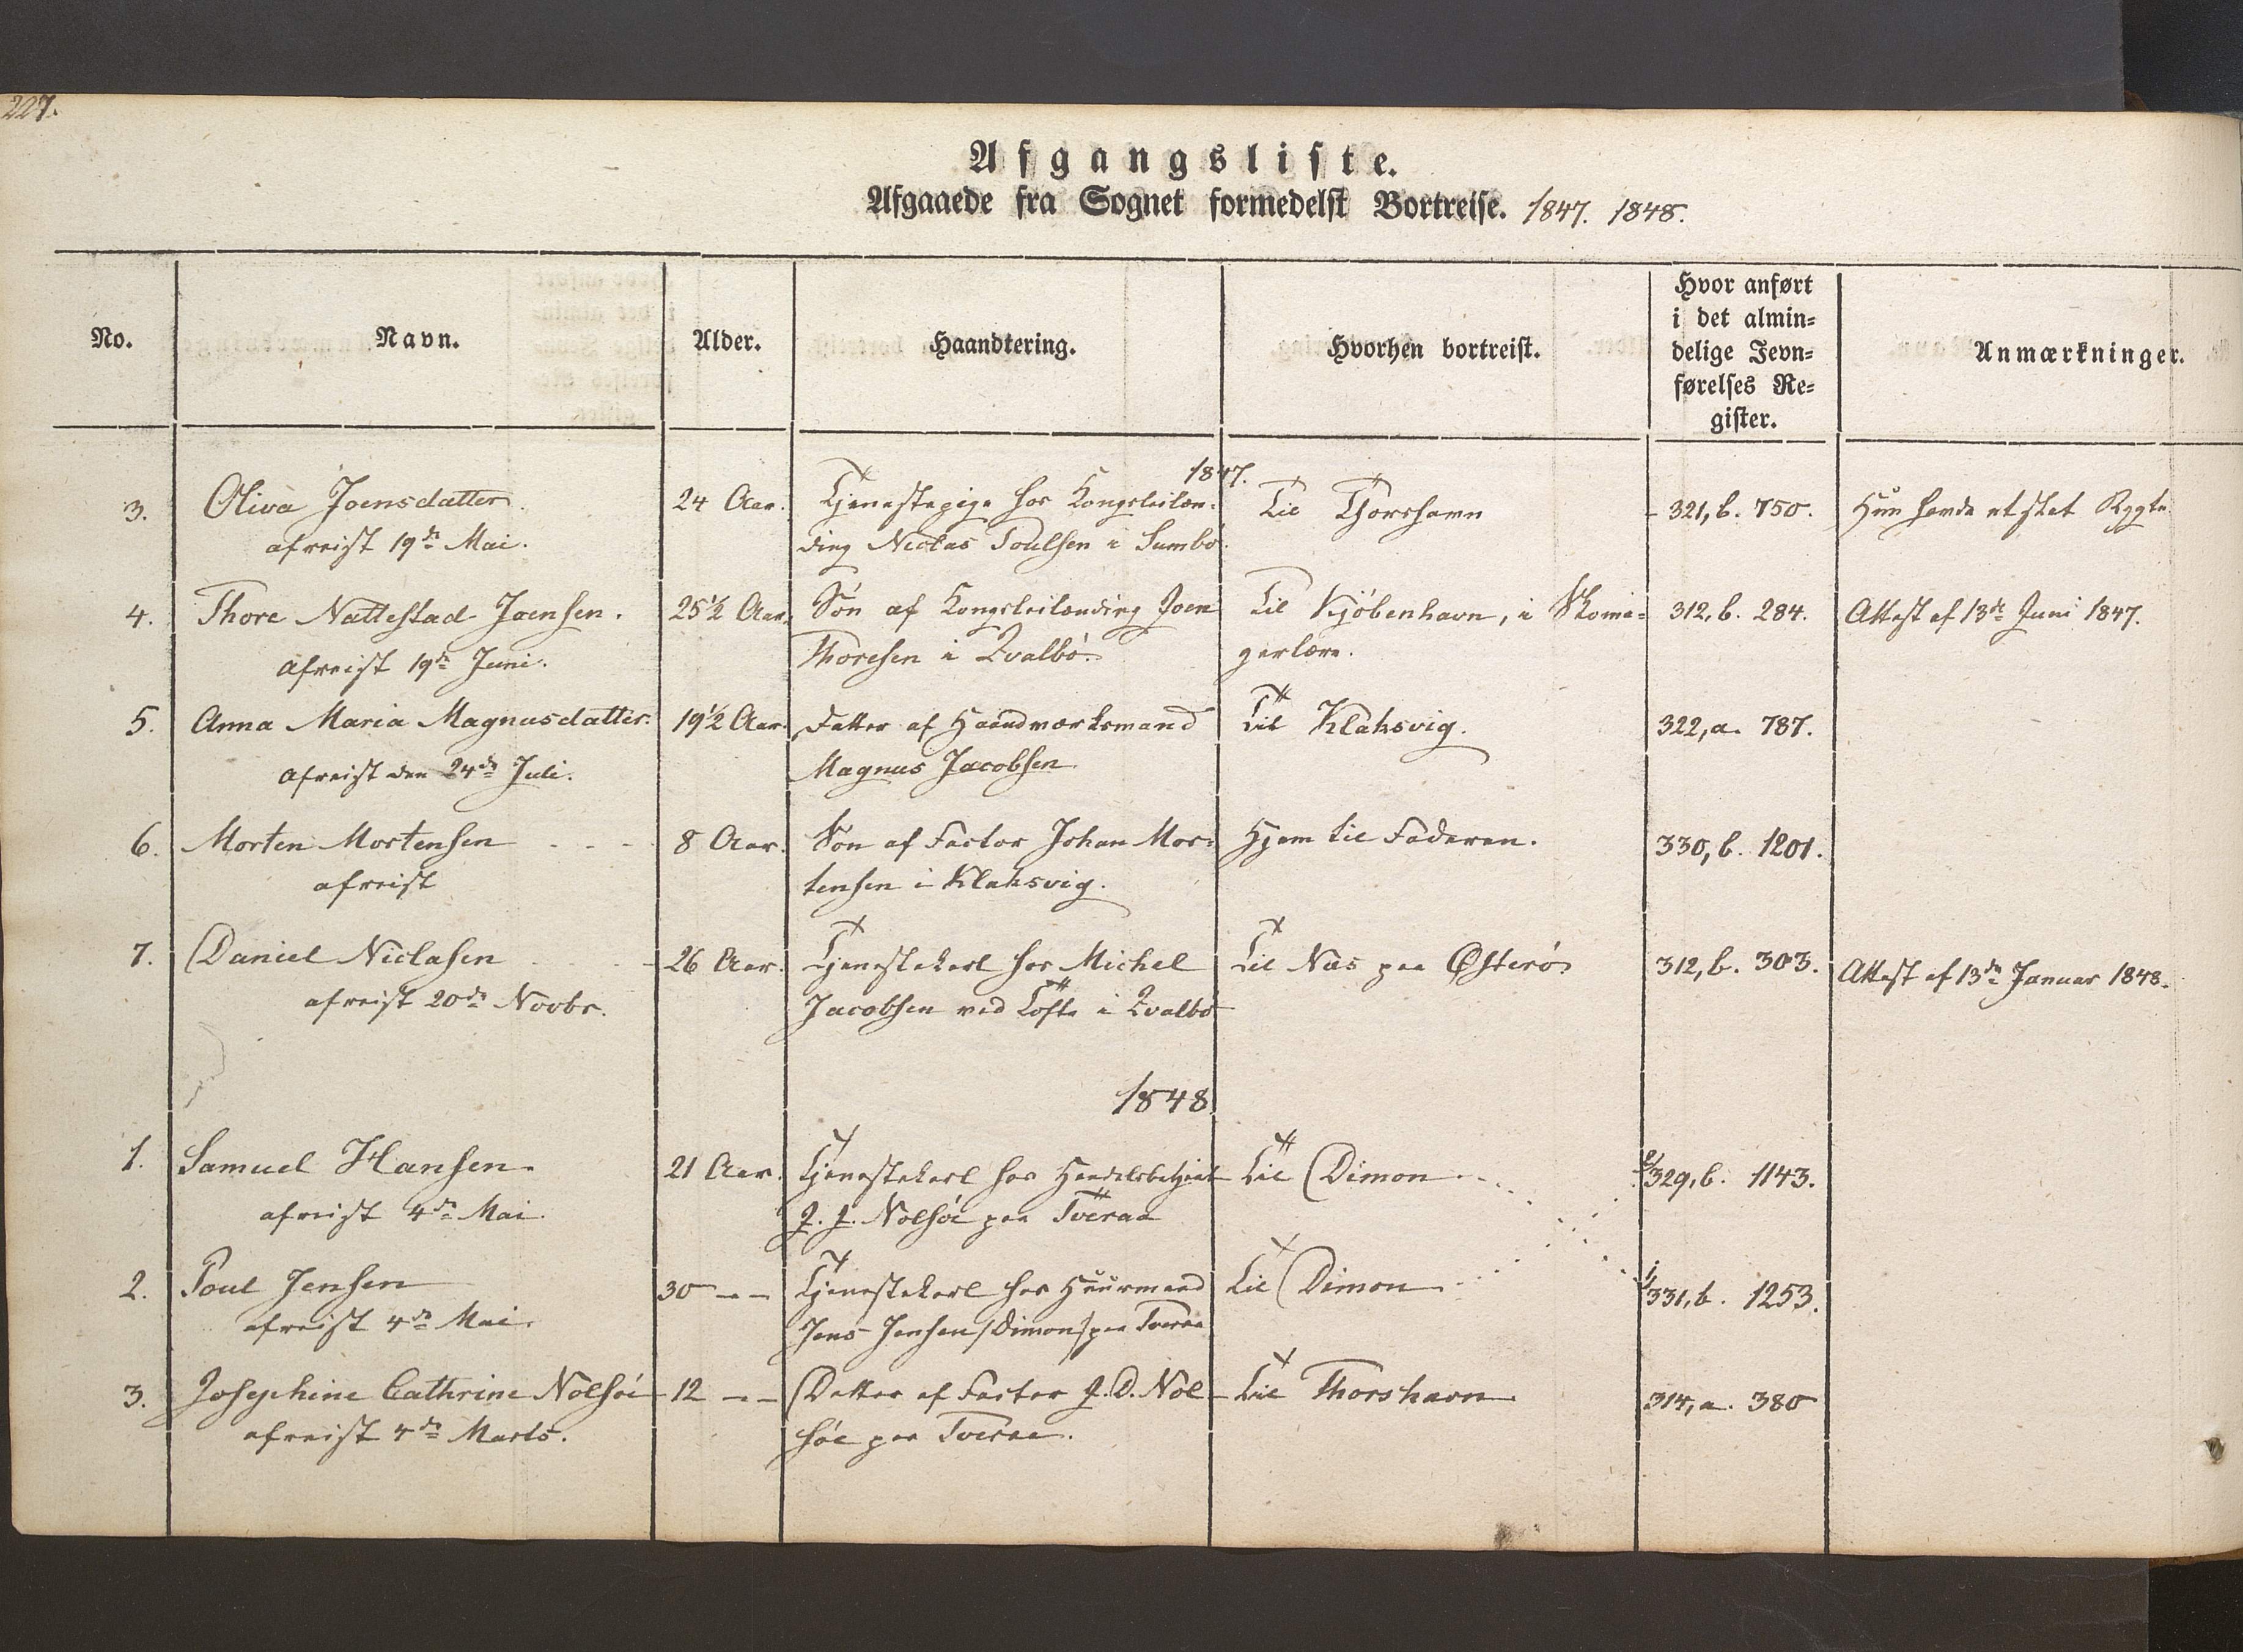 227.
Afgangsliste.
Afgaaede fra Sognet formedelst Bortreise. 1847. 1848.
No.
Navn.
Alder.
Haandtering.
Hvorhen bortreist.
Hvor anført
i det almin=
delige Jevn=
førelses Re=
gister.
Anmærkninger.
1847.
3.
Oliva Joensdatter
afreist 19de Mai.
24 Aar.
Tjenestepige hos Kongsleilæn-
ding Niclas Poulsen i Sumbø.
Til Thorshavn
321, b. 750.
Hun havde et slet Rygte.
4.
Thore Nattestad Joensen.
afreist 19de Juni.
25½ Aar.
Søn af Kongsleilænding Joen
Thoresen i Qvalbø.
Til Kjøbenhavn, i Skoma=
gerlære.
312, b. 284.
Attest af 13de Juni 1847.
5.
Anna Maria Magnusdatter.
afreist den 24de Juli.
19½ Aar.
Datter af Haandværksmand
Magnus Jacobsen
Til Klaksvig.
322, a. 787.
6.
Morten Mortensen
afreist
8 Aar.
Søn af Factor Johan Mor-
tensen i Klaksvig.
Hjem til Faderen.
330, b. 1201.
7.
Daniel Niclasen
afreist 20de Novbr.
26 Aar.
Tjenestekarl hos Michel
Jacobsen ved Tofte i Qvalbø
Til Næs paa Østerø
312, b. 303.
Attest af 13de Januar 1848.
1848
1.
Samuel Hansen
afreist 4de Mai.
21 Aar.
Tjenestekarl hos Handelsbetjent
J. J. Nolsøe paa Tveraa
Til Dimon
329, b. 1143.
2.
Poul Jensen
afreist 4de Mai.
30 - -
Tjenestekarl hos Huusmand
Jens Jensen /Dimon/ paa Tveraa
Til Dimon
331, b. 1253.
3.
Josephine Cathrine Nolsøe
afreist 4de Marts.
12 - -
Datter af Factor J. D. Nol-
søe paa Tveraa.
Til Thorshavn
314, a. 380